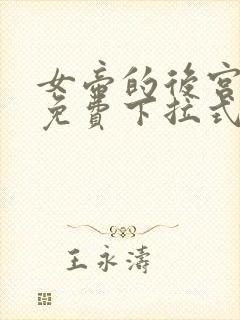 女帝的後宮
免費下拉式
王永濤